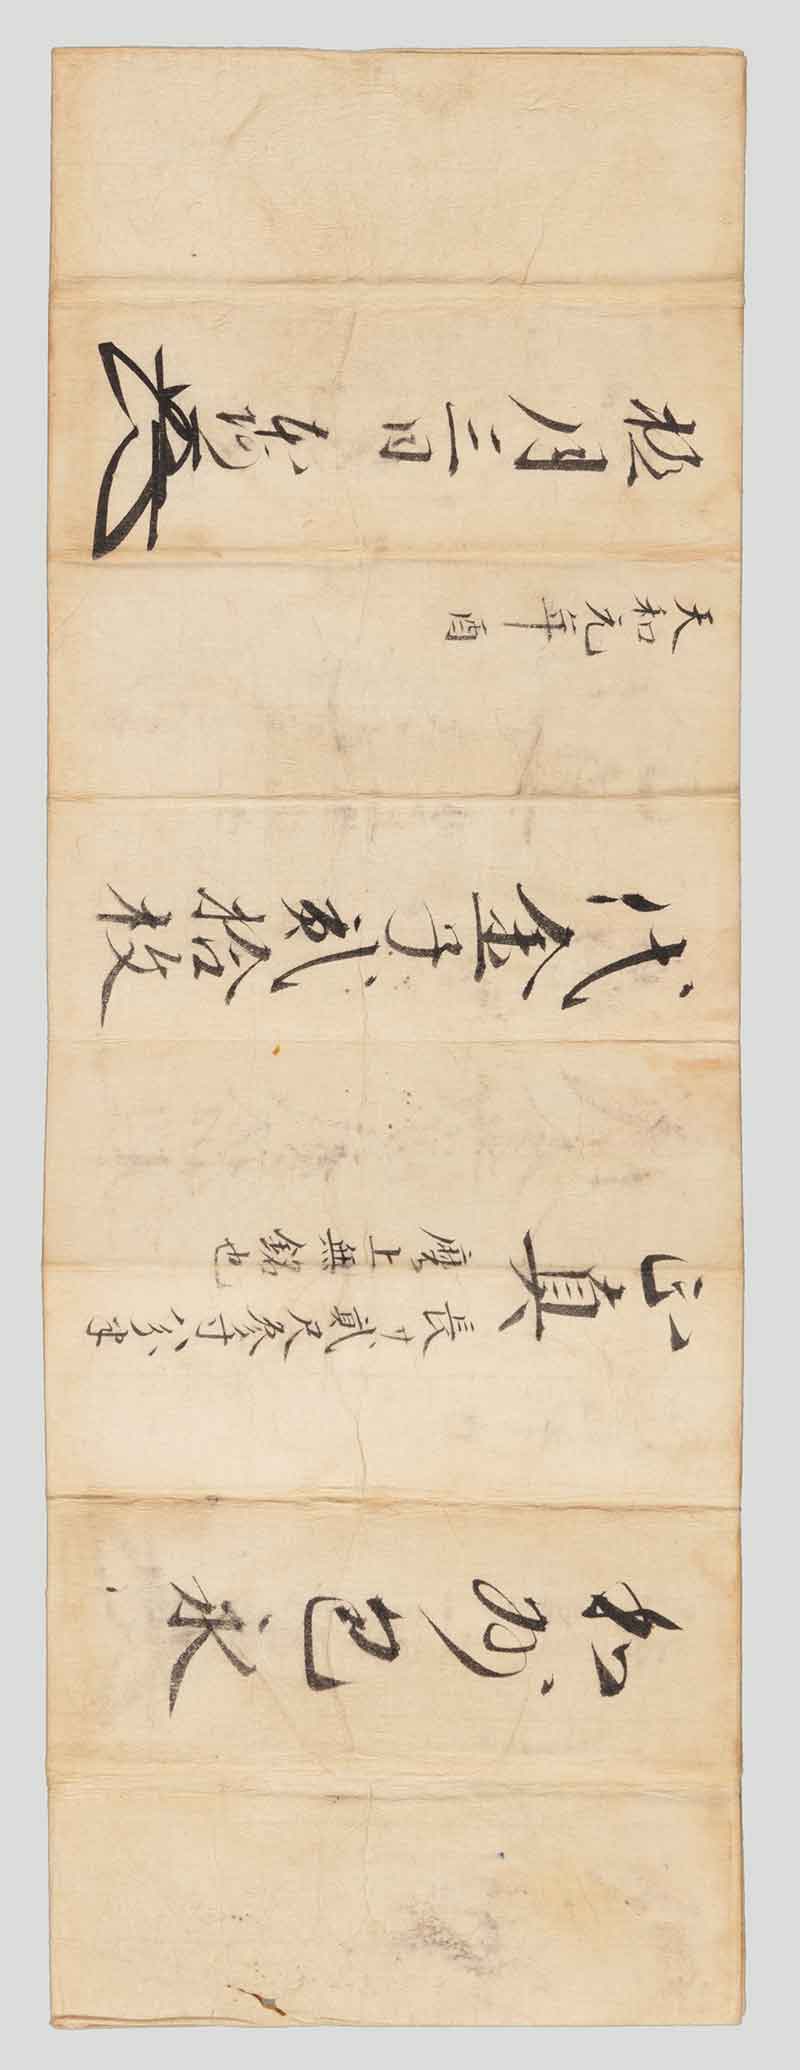 和州包永
正真 長サ貳尺参寸八分半
磨上無銘也
代金子貳拾枚
天和元年酉
極月三日 本阿